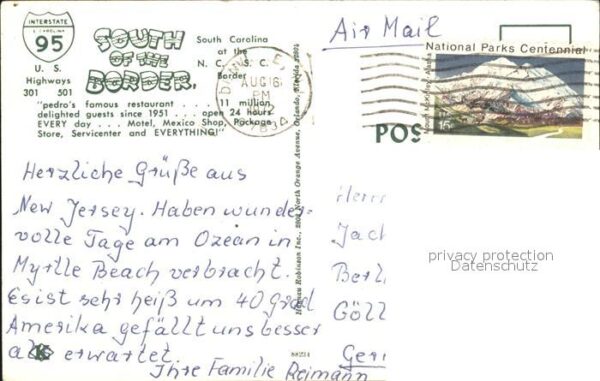 INTERSTATE
S. CAROLINA
95
U. S.
Highways
301 501
SOUTH
OF THE
BORDER.
South Carolina
at the
N. C. S. C.
Border
"pedro's famous restaurant . . . 11 million
delighted guests since 1951 . . . open 24 hours
EVERY day . . . Motel, Mexico Shop, Package
Store, Servicenter and EVERYTHING!"
Herzliche Grüße aus
New Jersey. Haben wunder-
volle Tage am Ozean in
Myrtle Beach verbracht.
Es ist sehr heiß um 40 Grad
Amerika gefällt uns besser
als erwartet.
Ihre Familie Reimann
88234
AUG 16
PM
1972
Air Mail
National Parks Centennial
15
POS
Herrn
Jach
Berl
Göll
Ger
privacy protection
Datenschutz